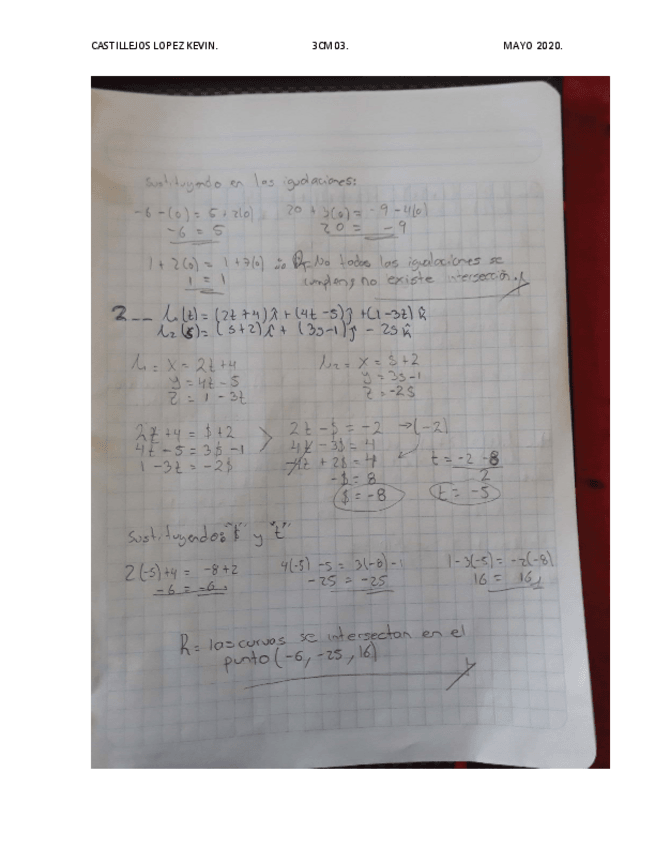 CASTILLEJOS LOPEZ KEVIN. 3CM03. MAYO 2020.
Sustituyendo en las igualaciones:
-6-(0) = 5+2(0) 20+3(0) = -9-4(0)
-6 = 5 20 = -9
1+2(0) = 1+7(0) ∴ R= No todas las igualaciones se
1 = 1 cumplen y no existe intersección.
2.- r₁(t) = (2t+4)î + (4t-5)ĵ + (1-3t)k̂
r₂(s) = (s+2)î + (3s-1)ĵ - 2sk̂
r₁ = x = 2t+4 r₂ = x = s+2
y = 4t-5 y = 3s-1
z = 1-3t z = -2s
2t+4 = s+2 2t-s = -2 →(-2)
4t-5 = 3s-1 4t-3s = 4
1-3t = -2s -4t+2s = 4 t = -2-8
-s = 8 2
s = -8 t = -5
Sustituyendo "s" y "t"
2(-5)+4 = -8+2 4(-5)-5 = 3(-8)-1 1-3(-5) = -2(-8)
-6 = -6 -25 = -25 16 = 16
R= las curvas se intersectan en el
punto (-6, -25, 16)